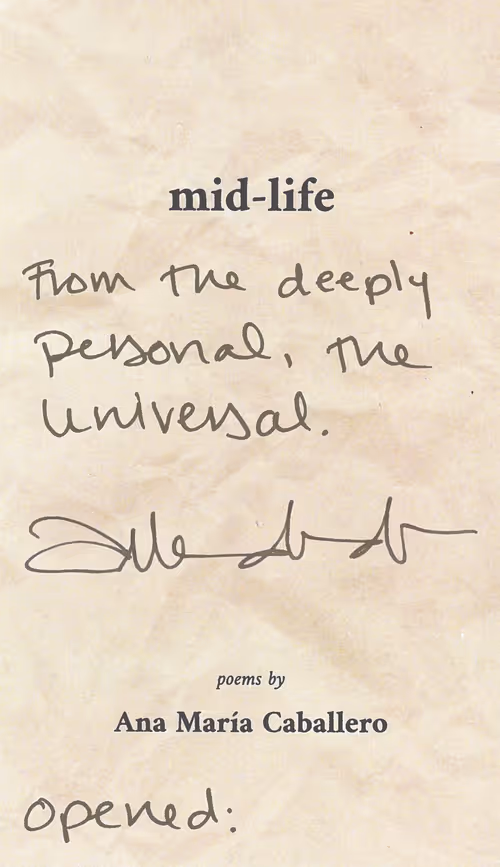 mid-life
From the deeply
personal, the
universal.
poems by
Ana María Caballero
opened: